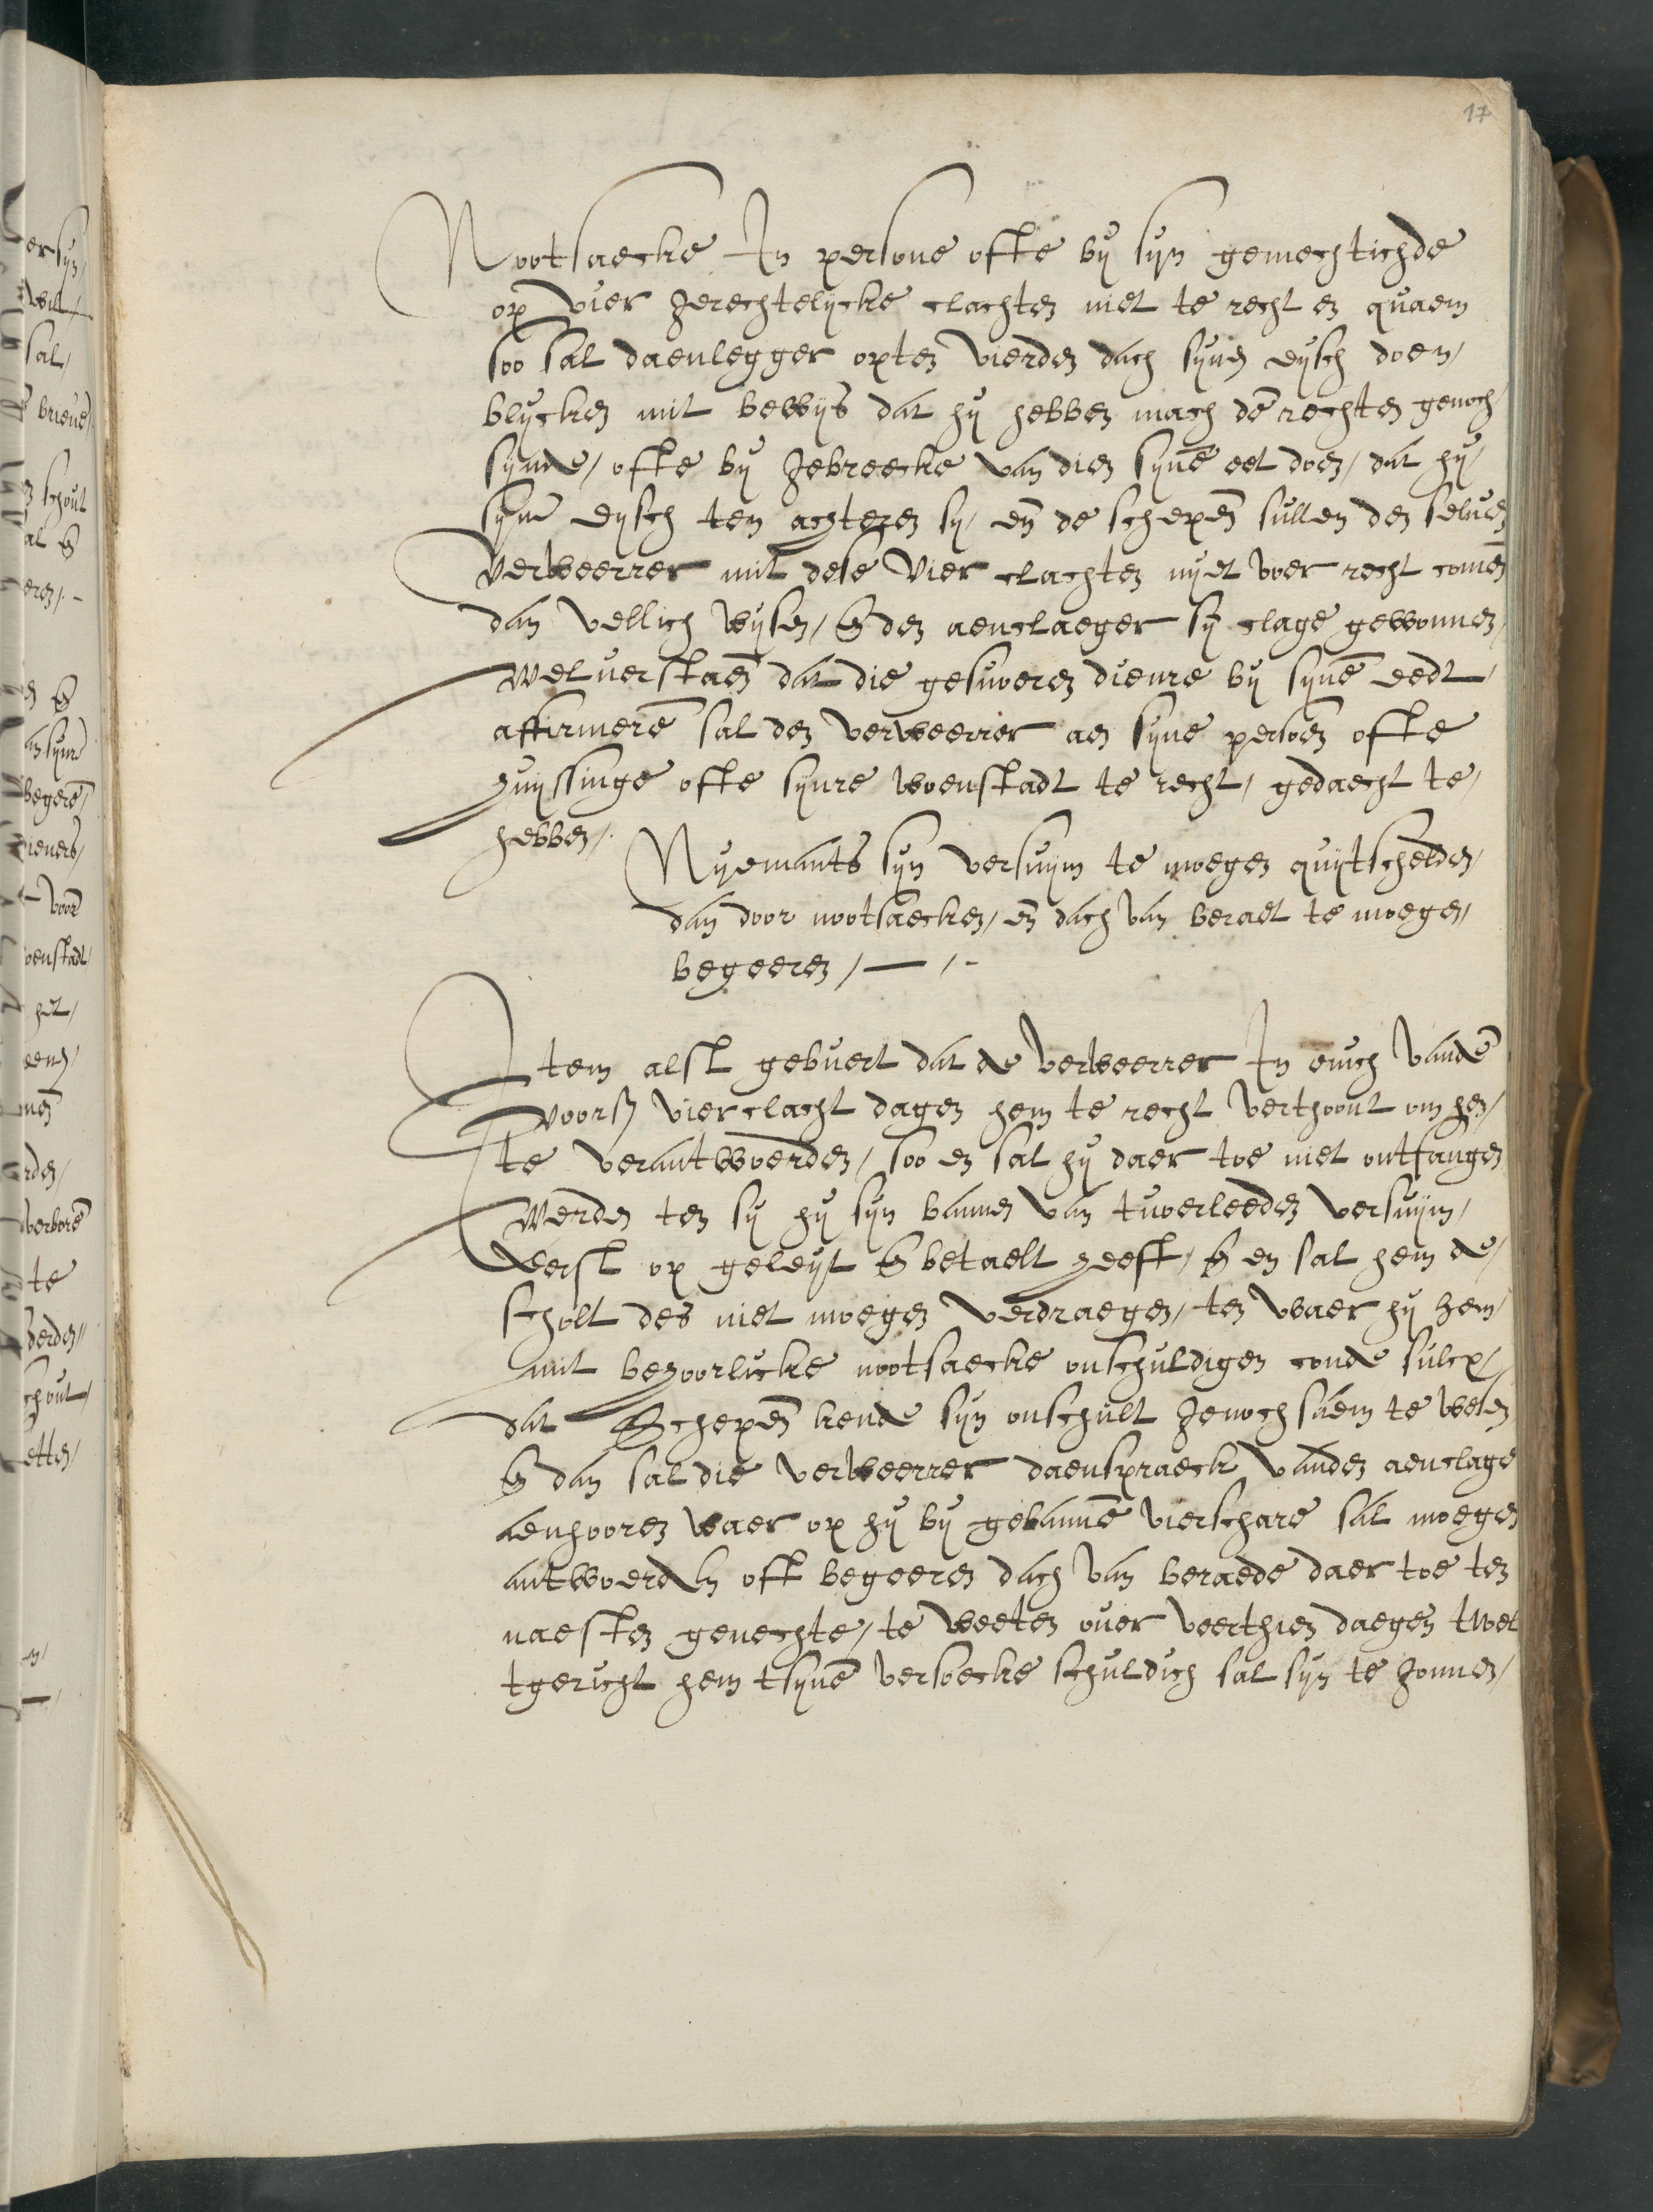 17
Nootsaecke In persone ofte bÿ sÿn gemechtichde
op vier gerechtelÿcke clachten niet te recht en quaem
soo sal daenlegger opten vierden dach sÿnen eÿsch doen/
blÿcken mit bewÿs dat hÿ hebben mach dē rechten genoch
sÿnde/ ofte bÿ gebreecke van dien sÿnē eet doen/ dat hÿ/
sÿne eÿsch ten achteren sÿ/ en̄ de schepen̄ sullen den seluen
verweerrer mit dese vier clachten nÿet voer recht comen̄
dan vellich wÿsen/ en̄ den aenclaeger sÿ clage gewonnen/
weluerstaen̄ dat die gesworen dienre bÿ sÿnē eedt/
affirmerē sal den verweerrer aen sÿne persoen ofte
huÿssinge ofte sÿnre woenstadt te recht/ gedaecht te/
hebben/.
Nÿemants sÿn versuÿm te moegen quÿtschelden/
dan door nootsaecken/ en̄ dach van beraet te moegen/
begeeren/ — /-
Item alst gebuert dat de verweerrer In enich vandē
voors vier clacht dagen hem te recht verthoont om hen/
te verantwoerden/ soo en sal hÿ daer toe niet ontfangen
werden ten sÿ hÿ sÿn bannen van tvoerleeden versuÿm/
eerst op geleÿt en̄ betaelt heeft/ en̄ en sal hem de/
scholt des niet moegen verdraegen/ ten waer hÿ hem/
mit behoorlicke nootsaecke onschuldigen conde sulcx/
dat Schepen̄ kende sÿn onschult genoch saem te wesen
en̄ dan sal die verweerrer daenspraeck vanden aenclage
aenhooren waer op hÿ bÿ gebannē vierschare sal moegen
antwoerden oft begeeren dach van beraede daer toe ten
naesten genechte/ te weeten ouer veerthien daegen twel
tgericht hem tsÿnē versoecke schuldich sal sÿn te gonnen/